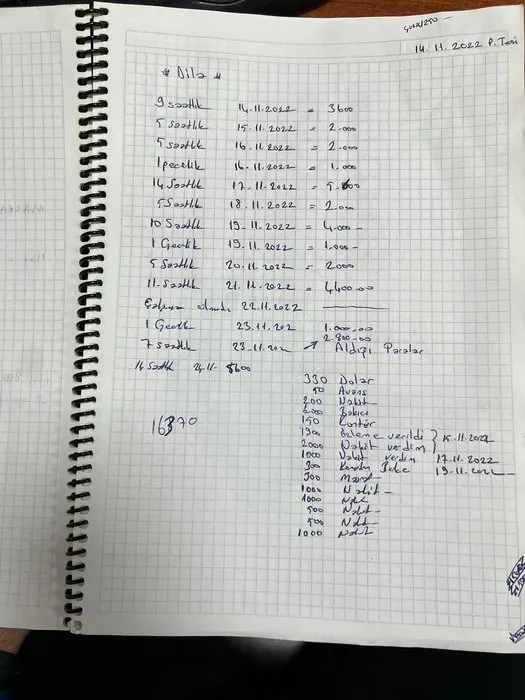 14.11.2022 P.Tesi
* Dila *
9 saatlik 14.11.2022 = 3600
5 saatlik 15.11.2022 = 2.000
5 saatlik 16.11.2022 = 2.000
1 gecelik 16.11.2022 = 1.000
14 Saatlik 17.11.2022 =
5 Saatlik 18.11.2022 = 2.000
10 Saatlik 19.11.2022 = 4.000-
1 Gecelik 19.11.2022 = 1.000-
5 Saatlik 20.11.2022 = 2000
11 Saatlik 21.11.2022 = 4400.00
Çalışma olmadı 22.11.2022
1 Gecelik 23.11.202 1.000.00
7 saatlik 23.11.202 2.800.00
Aldığı Paralar
14 Saatlik 24.11- 5600
330 Dolar
50 Avans
200 Nakit
200 Bakıcı
150 Kontür
1500 ödeme verildi } 15.11.2022
2000 Nakit verdim
1000 Nakit verdim 17.11.2022
300 19.11.2022
300 Masraf
1000 Nakit
1000 Nakit
500 Nakit
500 Nakit
1000 Nakit
16370